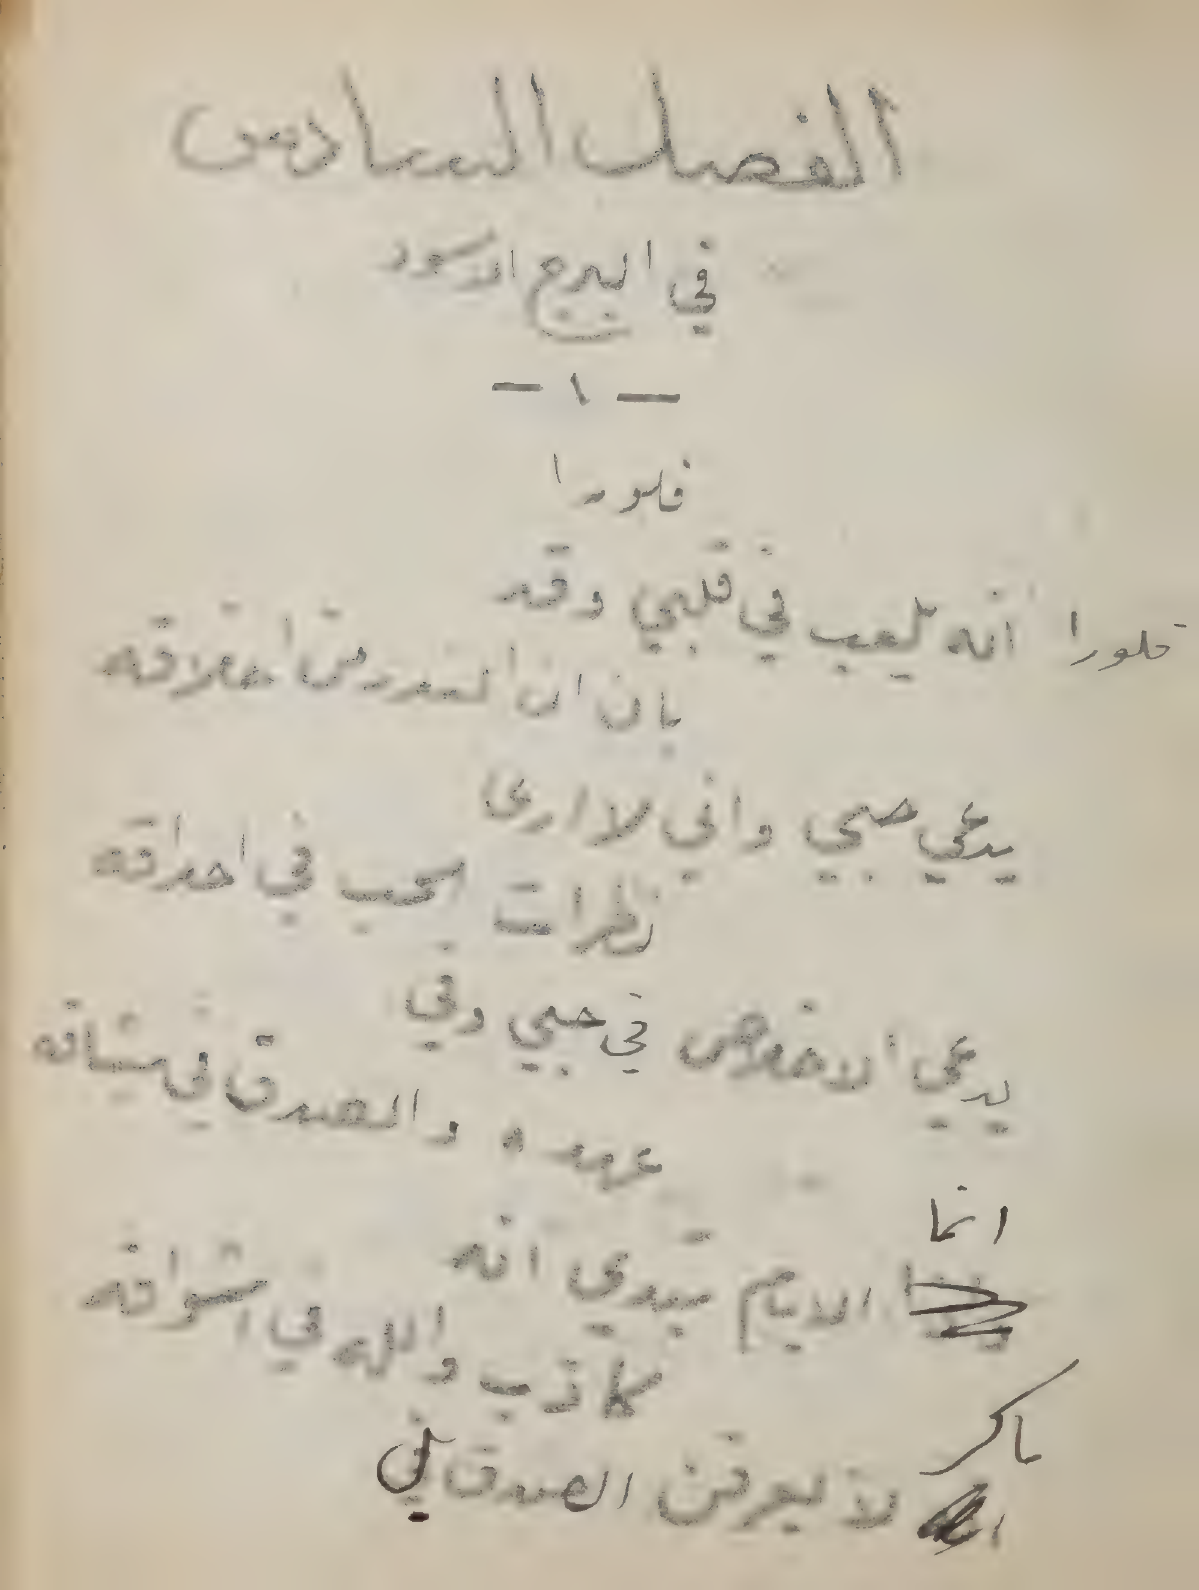 الفصل السادس
في البرج الاسود
— ١ —
فلورا
فلورا انه يلعب في قلبي وقد
بان ان الغدر من اخلاقه
يدعي حبي واني لا ارى
نظرات الحب في احداقه
يدعي الاخلاص في حبي وفي
عهده والصدق في ميثاقه
انما
الايام تبدي انه
كاذب والله في اشواقه
ماكر
لا يعرفن الصدق في